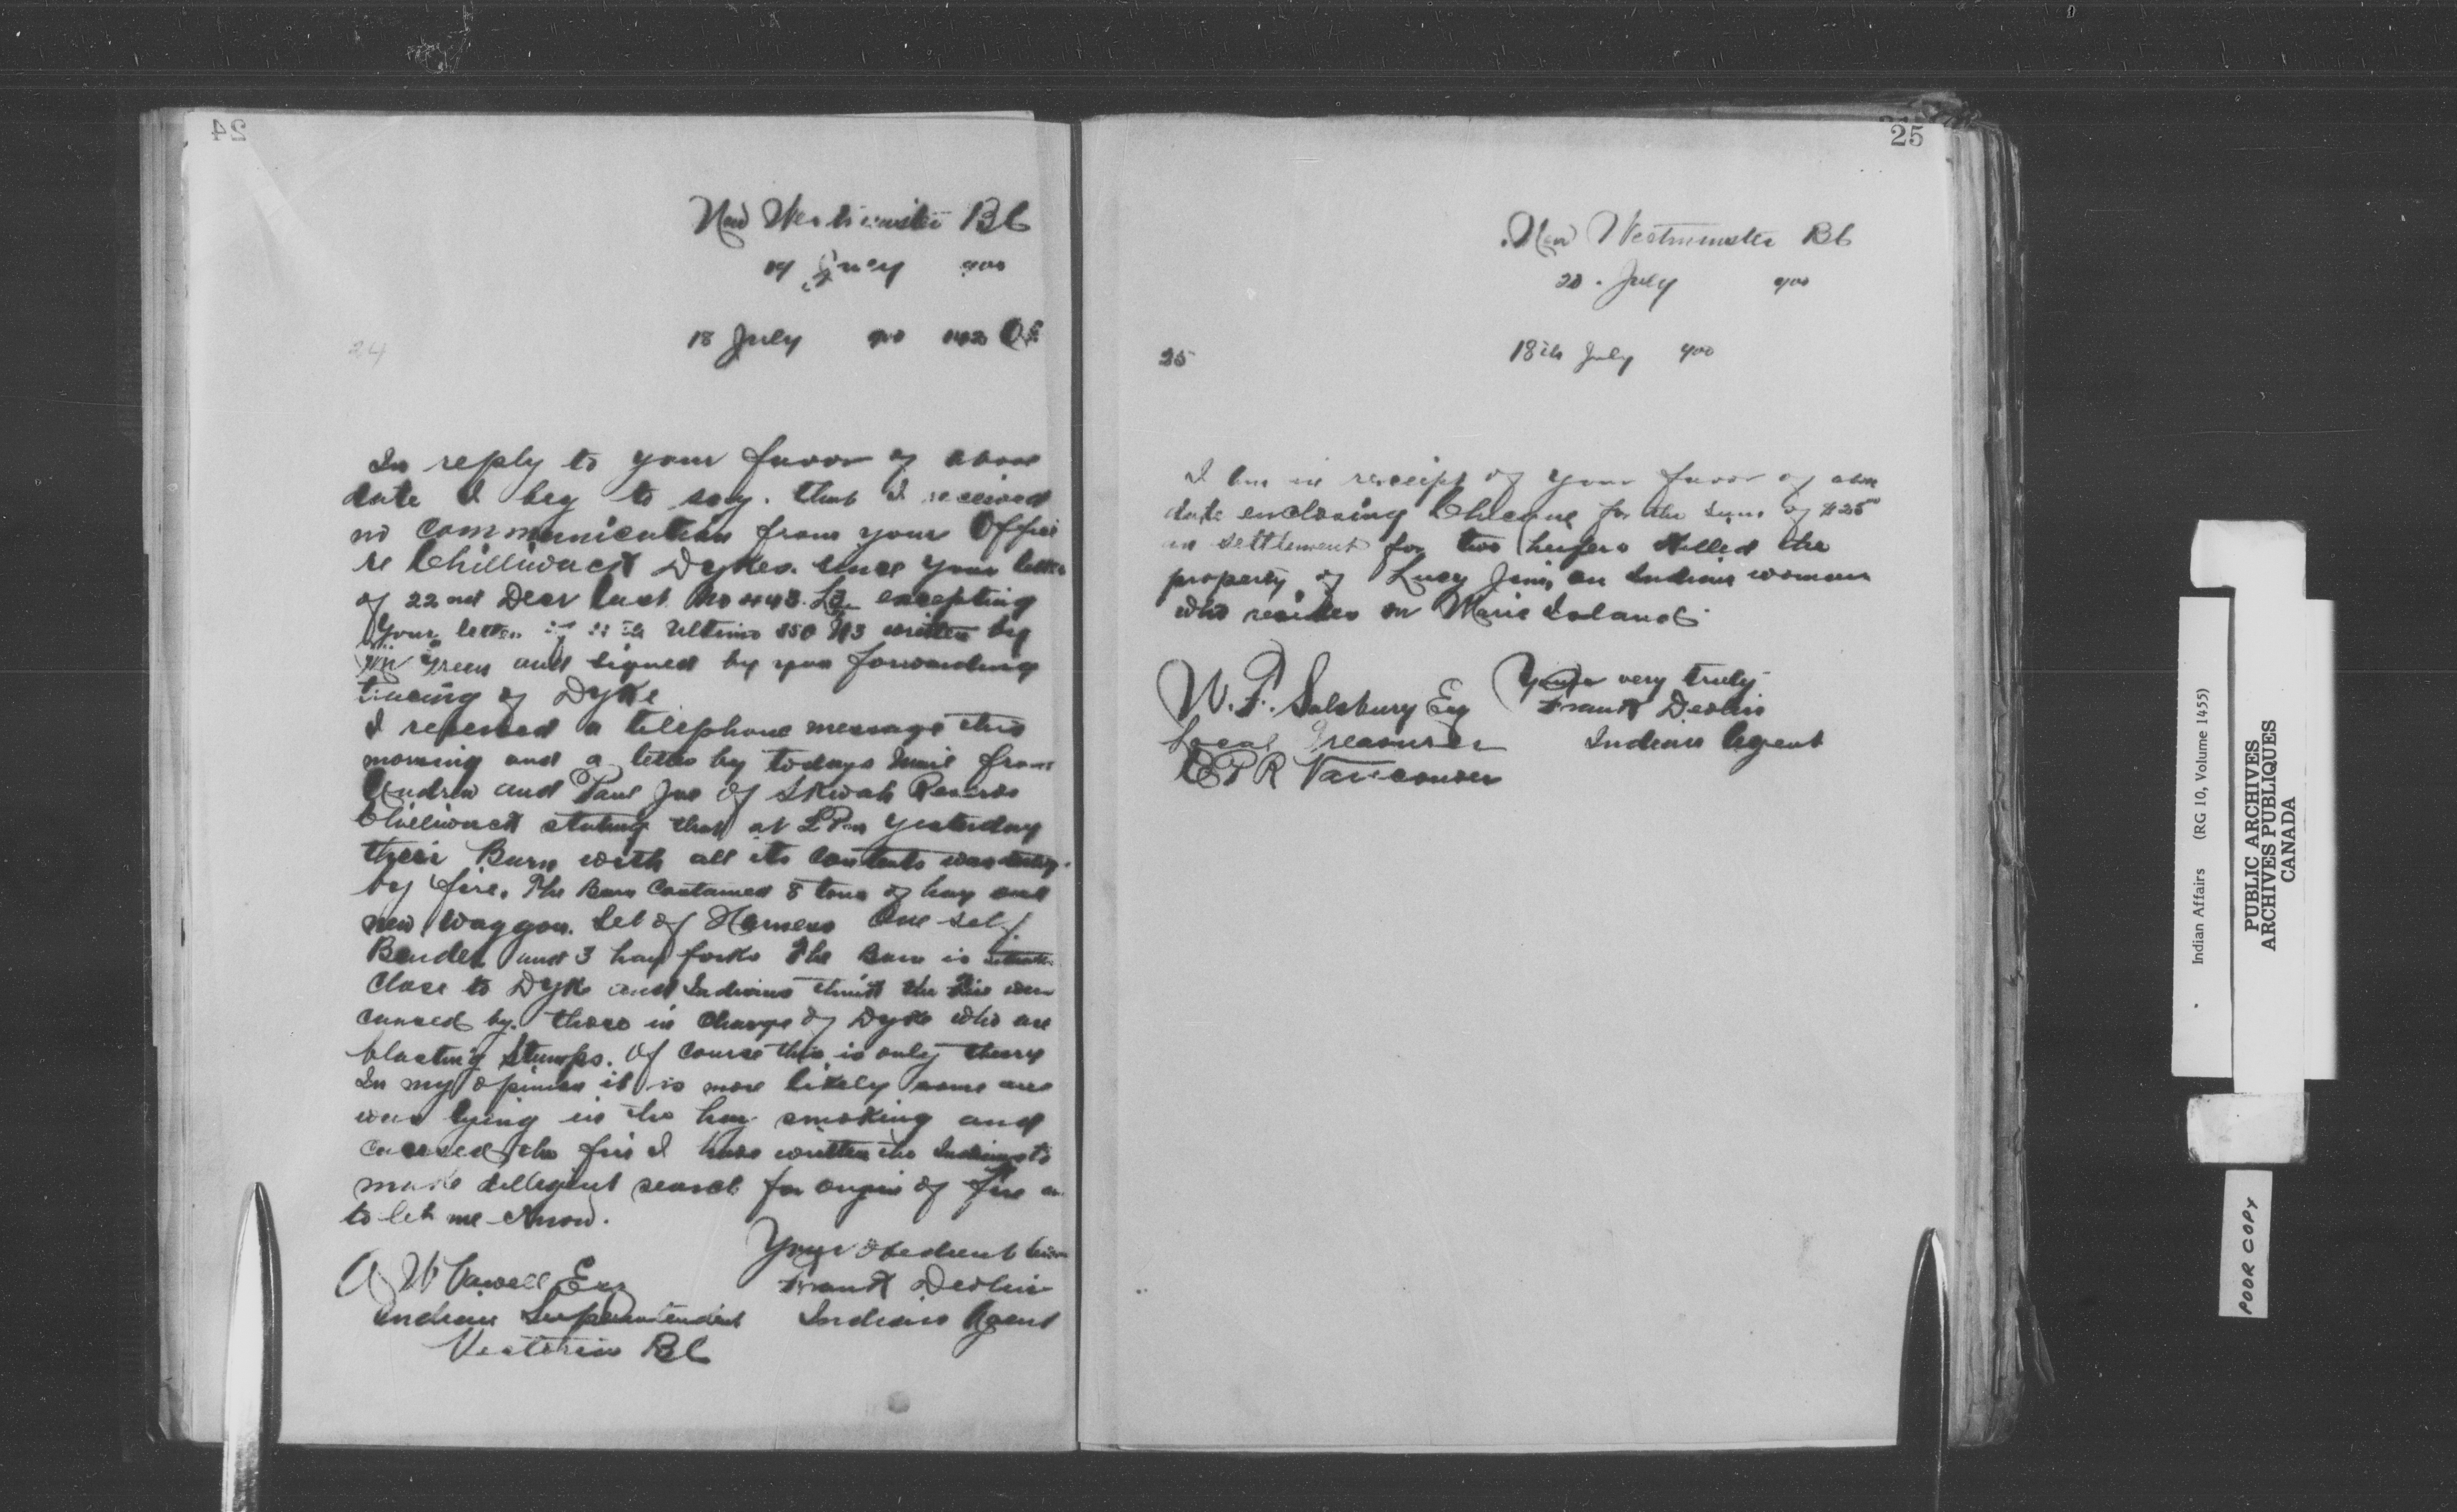 24
New Westminster BC
19 July 900
24
18 July 900 1402
In reply to your favor of above
date I beg to say. that I received
no communication from your Office
re Chilliwack Dykes. since your letter
of 22nd Decr last No 448. excepting
Your letter Ultimo 350 written by
Mr Green and signed by you forwarding
tracing of Dyke
I received a telephone message this
morning and a letter by todays Mail from
Andrew and Paul Joe of Skwah Reserve
Chilliwack stating that at 2 Pm yesterday
their Barn with all its contents was
by fire. The Barn Contained 8 tons of hay one
new Waggon. Set of Harness One self
Bender and 3 hay forks The Barn is
close to Dyke and Indians think the Fire was
caused by. those in charge of Dyke who are
blasting stumps. Of course this is only theory
In my opinion it is more likely some one
was lying in the hay smoking and
caused the fire I have written the Indians to
make dillegent search for origin of fire an
to let me know.
Your obedient
A W Vowell Esq
Frank Devlin
Indian Superintendent
Indian Agent
Victoria BC
25
New Westminster BC
20. July 900
25
18th July 900
I am in receipt of your favor of above
date enclosing Cheque for the sum of $25 00
in settlement for two heifers Killed the
property of Lucy Jim, an Indian woman
who resides on Maria Island.
Yours very truly
W. F. Salsbury Esq
Frank Devlin
Local Treasurer
Indian Agent
CPR Vancouver
Indian Affairs (RG 10, Volume 1455)
PUBLIC ARCHIVES
ARCHIVES PUBLIQUES
CANADA
POOR COPY